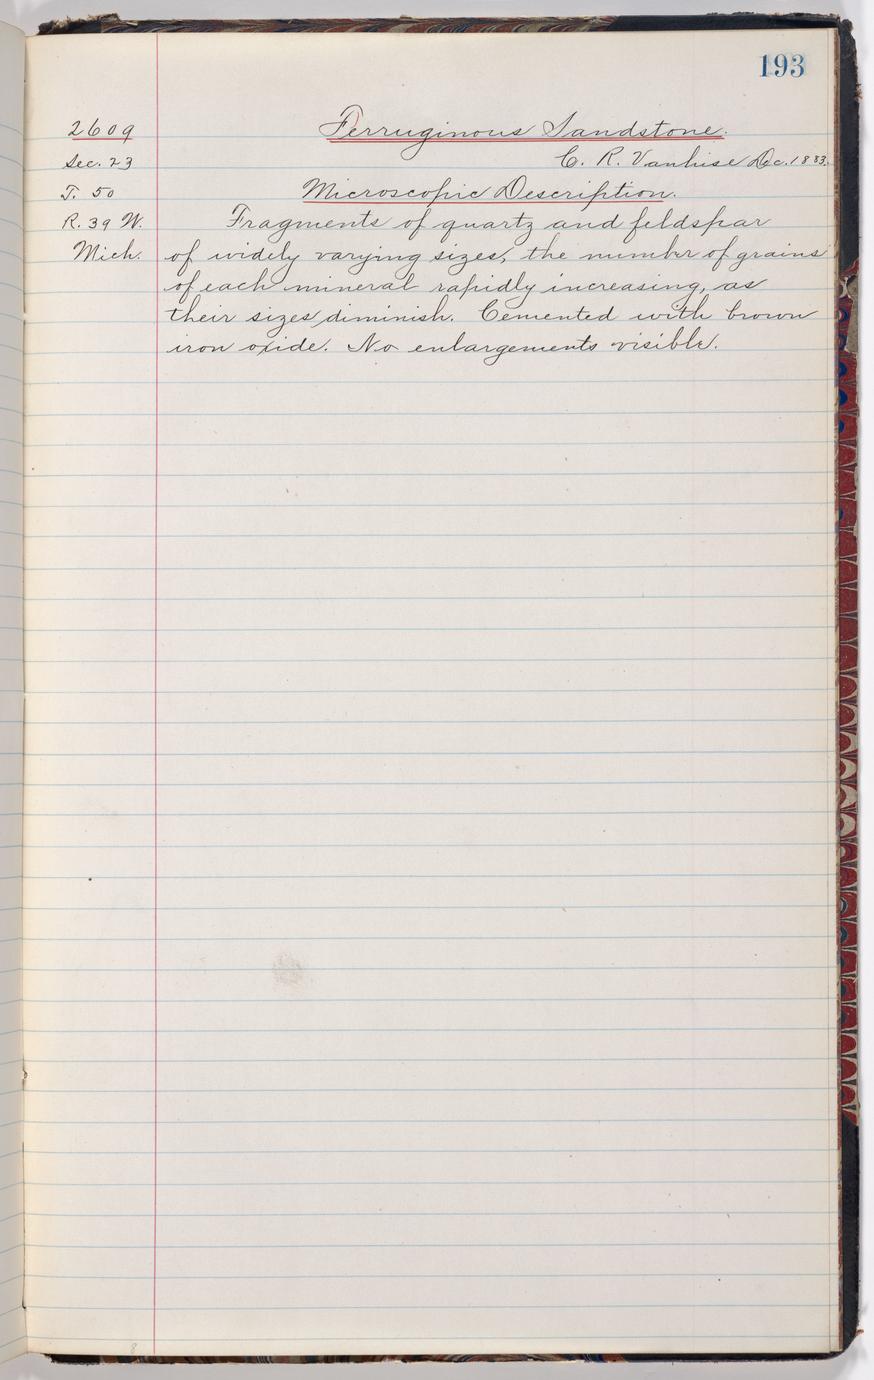 193
2609 Ferruginous Sandstone.
Sec. 23 C. R. Vanhise Dec. 1883.
T. 50 Microscopic Description.
R. 39 W. Fragments of quartz and feldspar
Mich. of widely varying sizes, the number of grains
of each mineral rapidly increasing, as
their sizes diminish. Cemented with brown
iron oxide. No enlargements visible.
8